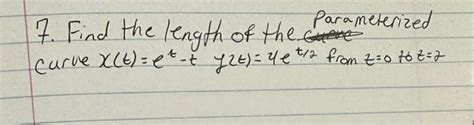 7. Find the length of the Parameterized
curve x(t)=e^t-t y2t)=4e^t/2 from t=0 to t=2